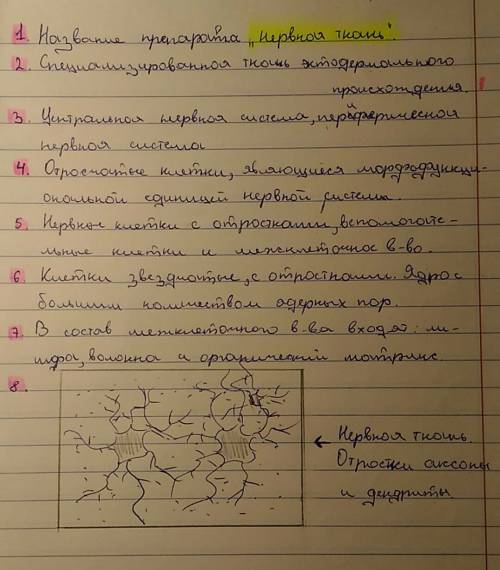 1. Название препарата „Нервная ткань".
2. Специализированная ткань эктодермального
происхождения.
3. Центральная нервная система, периферической
нервная система
4. Отросчатые клетки, являющиеся морфофункци-
ональной единицей нервной системы.
5. Нервные клетки с отростками, вспомогате-
льные клетки и межклеточное в-во.
6. Клетки звездчатые, с отростками. Ядро с
большим количеством ядерных пор.
7. В состав межклеточного в-ва входят: ли-
мфа, волокна и органический матрикс.
8.
← Нервная ткань.
Отростки аксоны
и дендриты